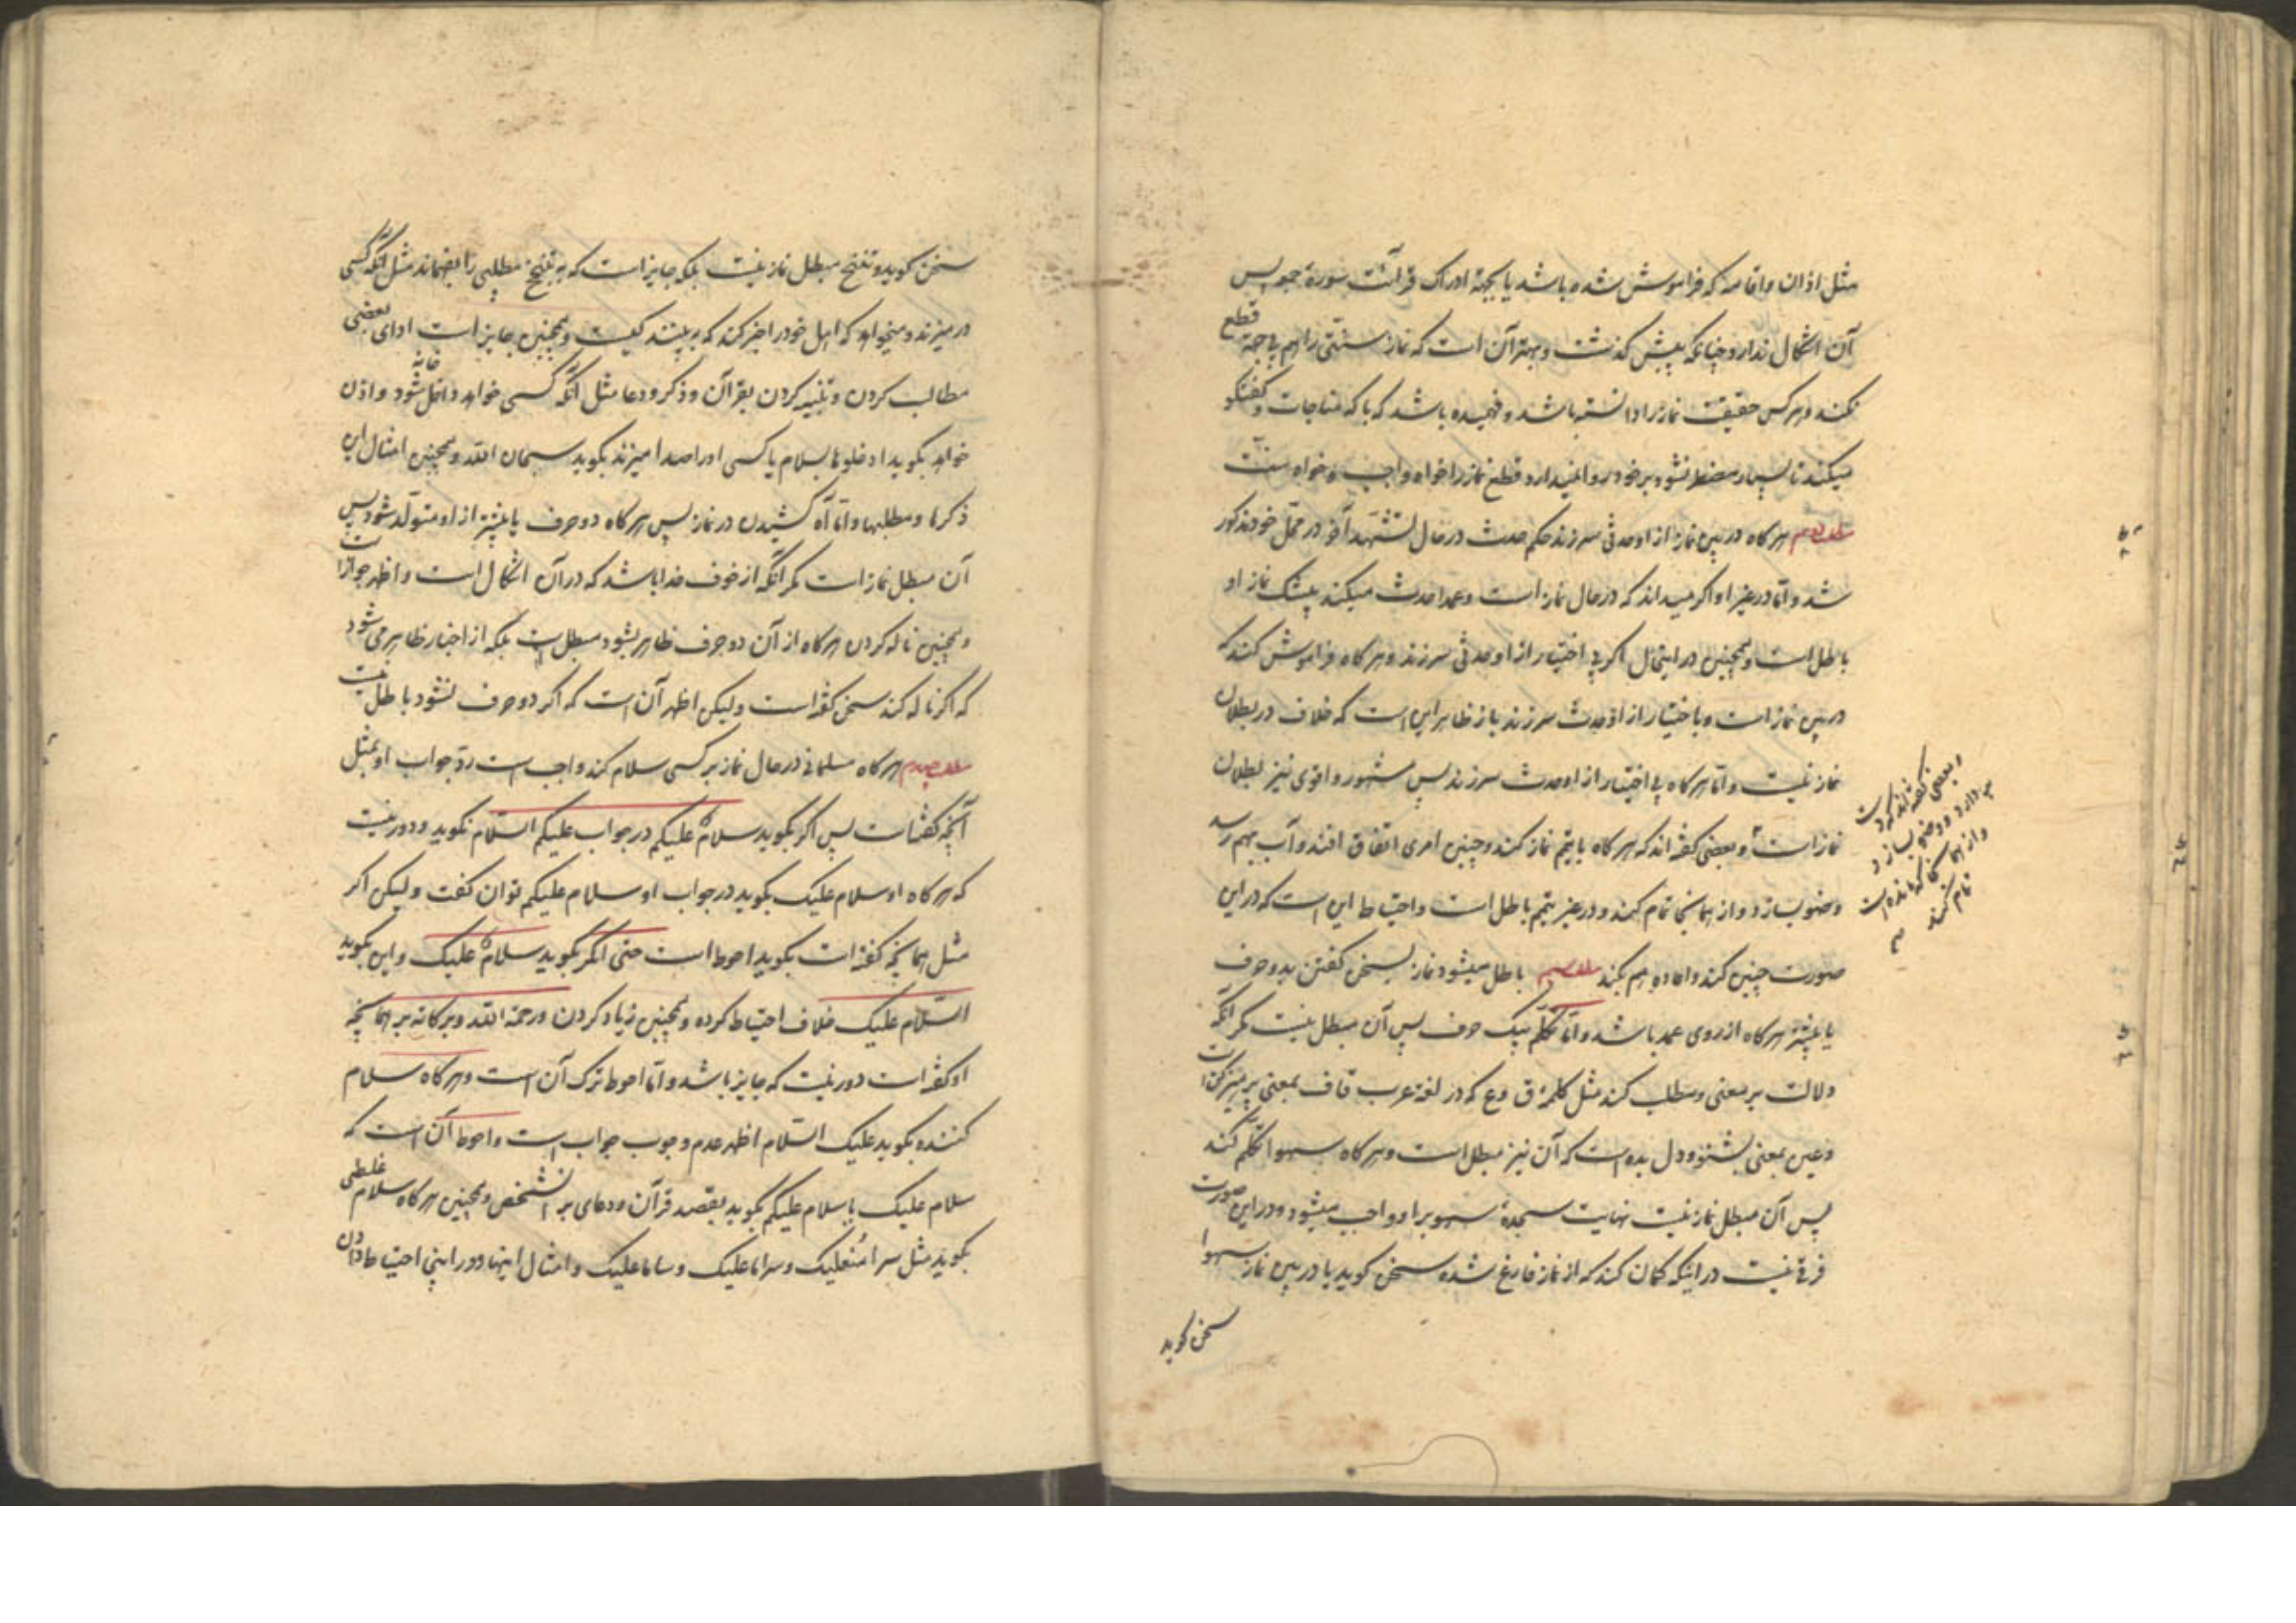 مثل اذان واقامه که فراموش شده باشد یا بجهة ادراک قرائت سورهٔ جمعه پس
آن اشکال ندارد چنانکه پیش گذشت و بهتر آن است که نماز سنتی را هم بی‌جهة قطع
نکند و هر کس حقیقت نماز را دانسته باشد و فهمیده باشد که با که مناجات و گفتگو
میکند تا بسیار مضطر نشود بر خود روا نمیدارد قطع نماز را خواه واجب و خواه سنت
هر گاه در بین نماز از او حدثی سر زند حکم حدث در حال تشهد آخر در محل خود مذکور
شد و اما در غیر او اگر میداند که در حال نماز است و عمدا حدث میکند بیشک نماز او
باطل است و همچنین در اینحال اگر بی اختیار از او حدثی سر زند و هر گاه فراموش کند که
در بین نماز است و باختیار از او حدث سر زند باز ظاهر این است که خلاف در بطلان
نماز نیست و اما هر گاه بی اختیار از او حدث سر زند پس مشهور و اقوی نیز بطلان
نماز است و بعضی گفته‌اند که هر گاه با تیمم نماز کند و چنین امری اتفاق افتد و آب بهم رسد
وضو بسازد و از همانجا تمام کند و در غیر تیمم باطل است و احتیاط این است که در این
صورت چنین کند و اعاده هم بکند باطل میشود نماز بسخن گفتن بدو حرف
یا بیشتر هر گاه از روی عمد باشد و اما تکلم بیک حرف پس آن مبطل نیست مگر آنکه
دلالت بر معنی و مطلب کند مثل کلمهٔ ق وع که در لغة عرب قاف بمعنی پرهیز کن است
وعین بمعنی بشنو و دل بده است که آن نیز مبطل است و هر گاه سهوا تکلم کند
پس آن مبطل نماز نیست نهایت سجدهٔ سهو بر او واجب میشود و در این صورت
فرقی نیست در اینکه گمان کند که از نماز فارغ شده سخن گوید یا در بین نماز سهوا
سخن گوید
و بعضی گفته‌اند که دست
بر دارد و وضو بسازد
و از همانجا که مانده است
تمام کند
سخن گوید و تنحنح مبطل نماز نیست بلکه جایز است که به تنحنح مطلبی را بفهماند مثل آنکه کسی
در میزند و میخواهد که اهل خود را خبر کند که به بینند کیست و همچنین جایز است ادای بعضی
مطالب کردن و تنبیه کردن بقرآن و ذکر و دعا مثل آنکه کسی خواهد داخل خانه شود و اذن
خواهد بگوید ادخلوها بسلام یا کسی او را صدا میزند بگوید سبحان الله و همچنین امثال این
ذکرها و مطلبها و اما آه کشیدن در نماز پس هر گاه دو حرف یا بیشتر از او متولد شود پس
آن مبطل نماز است مگر آنکه از خوف خدا باشد که در آن اشکال است و اظهر جواز است
و همچنین ناله کردن هر گاه از آن دو حرف ظاهر بشود مبطل است بلکه از اخبار ظاهر می شود
که اگر ناله کند سخن گفته است ولیکن اظهر آن است که اگر دو حرف نشود باطل نیست
هر گاه مسلمانی در حال نماز بر کسی سلام کند واجب است رد جواب او بمثل
آنچه گفته است پس اگر بگوید سلام علیکم در جواب علیکم السلام نگوید و دور نیست
که هر گاه او سلام علیک بگوید در جواب او سلام علیکم توان گفت ولیکن اگر
مثل همانچه گفته است بگوید احوط است حتی اگر بگوید سلام علیک و این بگوید
السلام علیک خلاف احتیاط کرده و همچنین زیاد کردن ورحمة الله وبرکاته بر همانچه
او گفته است دور نیست که جایز باشد و اما احوط ترک آن است و هر گاه سلام
کننده بگوید علیک السلام اظهر عدم وجوب جواب است و احوط آن است که
سلام علیک یا سلام علیکم بگوید بقصد قرآن و دعای بر آنشخص و همچنین هر گاه سلام غلطی
بگوید مثل سرا منعلیک و سراما علیک و ساما علیک و امثال اینها و در